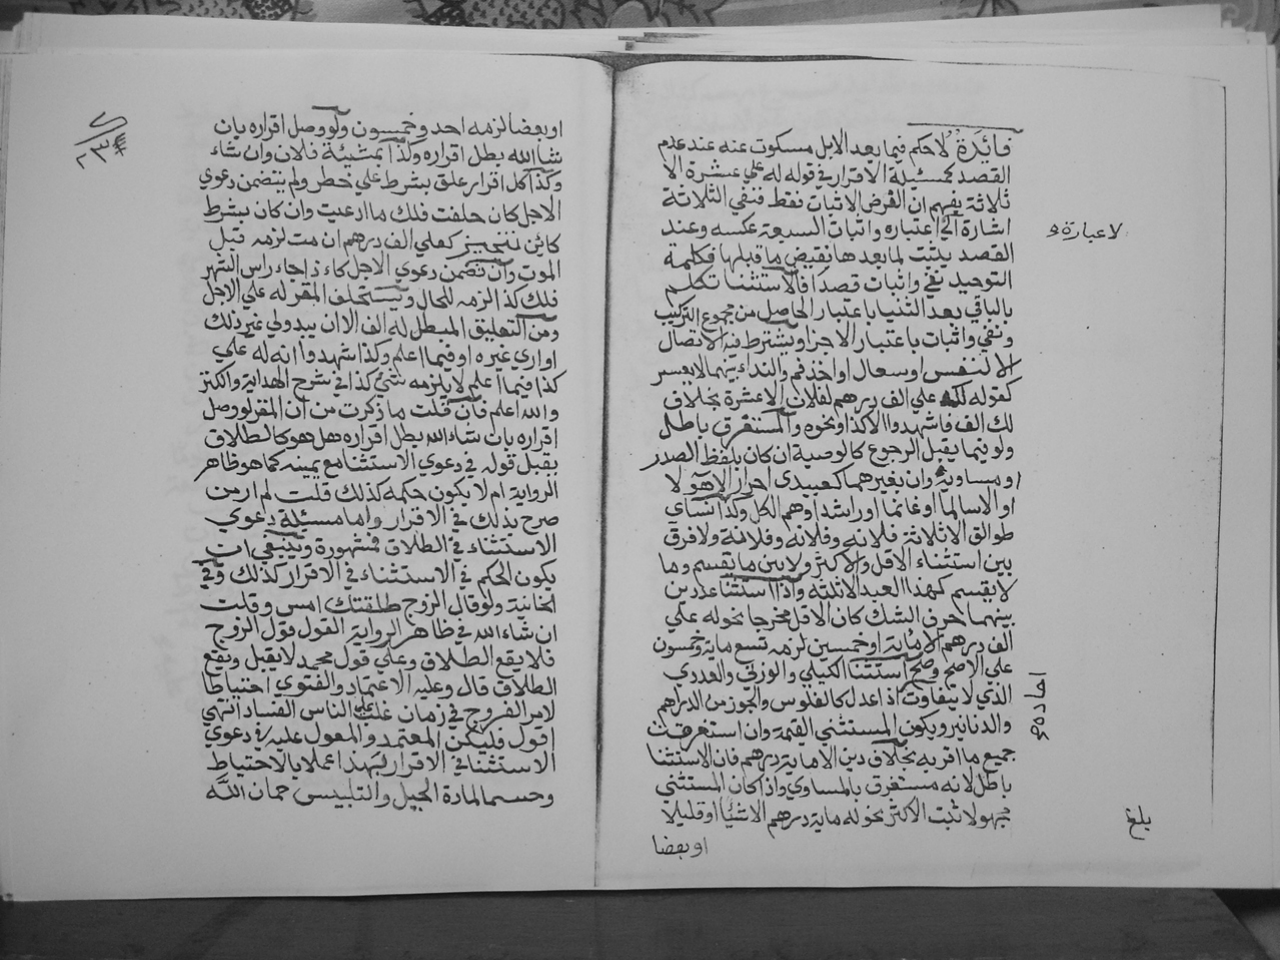 فائدة لا حكم فيما بعد الا بل مسكوت عنه عند عدم
القصد كمسئلة الاقرار في قوله له علي عشرة الا
ثلاثة يفهم ان الغرض الاثبات فقط فنفي الثلاثة
اشارة الي اعتباره واثبات السبعة عكسه وعند
القصد يثبت لما بعدها نقيض ما قبلها فكلمة
التوحيد نفي واثبات قصدا فالاستثنا تكلم
بالباقي بعد الثنيا باعتبار الحاصل من مجموع التركيب
ونفي واثبات باعتبار الاجزا ويشترط فيه الاتصال
الا لنفس او سعال او اخذ فم والنداء بينهما لا يضر
كقوله لك علي الف درهم لفلان الا عشرة بخلاف
لك الف فاشهدوا الا كذا ونحوه والمستغرق باطل
ولو فيما يقبل الرجوع كالوصية ان كان بلفظ الصدر
او مساويه وان بغيرهما كعبيدي احرار الا هؤلا
او الا سالما او غانما او راشدا وهم الكل وكذا نساي
طوالق الا ثلاثة فلانه وفلانه وفلانة ولا فرق
بين استثناء الاقل والاكثر ولا بين ما يقسم وما
لا يقسم كهذا العبد الا ثلثه واذا استثنا عددين
بينهما حرف الشك كان الاقل مخرجا نحو له علي
الف درهم الا ماية او خمسين لزمه تسع ماية وخمسون
علي الاصح وصح استثنا الكيلي والوزني والعددي
الذي لا يتفاوت اذا عدل كالفلوس والجوز من الدراهم
والدنانير ويكون المستثني القيمة وان استغرقت
جميع ما اقر به بخلاف دين الا ماية درهم فان الاستثنا
باطل لانه مستغرق بالمساوي واذا كان المستثني
مجهولا ثبت الاكثر نحو له ماية درهم الا شيئا او قليلا
او بعضا
لا عبارة
بلغ
او بعضا لزمه احد وخمسون ولو وصل اقراره بان
شا الله بطل اقراره وكذا بمشيئة فلان وان شاء
وكذا كل اقرار علق بشرط علي خطر ولم يتضمن دعوي
الاجل كان حلفت فلك ما ادعيت وان كان بشرط
كائن تنجيز كعلي الف درهم ان مت لزمه قبل
الموت وان تضمن دعوي الاجل كاذا جاء راس الشهر
فلك كذا لزمه للحال ويستحلف المقر له علي الاجل
ومن التعليق المبطل له الف الا ان يبدو لي غير ذلك
او اري غيره او فيما اعلم وكذا اشهدوا انه له علي
كذا فيما اعلم لا يلزمه شئ كذا في شرح الهداية والكنز
والله اعلم فان قلت ما ذكرت من ان المقر لو وصل
اقراره بان شاء الله بطل اقراره هل هو كالطلاق
يقبل قوله في دعوي الاستثنا مع يمينه كما هو ظاهر
الرواية ام لا يكون حكمه كذلك قلت لم ار من
صرح بذلك في الاقرار واما مسئلة دعوي
الاستثناء في الطلاق فمشهورة وينبغي ان
يكون الحكم في الاستثناء في الاقرار كذلك وفي
الخانية ولو قال الزوج طلقتك امس وقلت
ان شاء الله في ظاهر الرواية القول قول الزوج
فلا يقع الطلاق وعلي قول محمد لا يقبل ويقع
الطلاق قال وعليه الاعتماد والفتوي احتياطا
لامر الفروج في زمان غلب علي الناس الفساد انتهي
اقول فليكن المعتمد والمعول عليه في دعوي
الاستثنا في الاقرار بهذا عملا بالاحتياط
وحسما لمادة الحيل والتلبيس